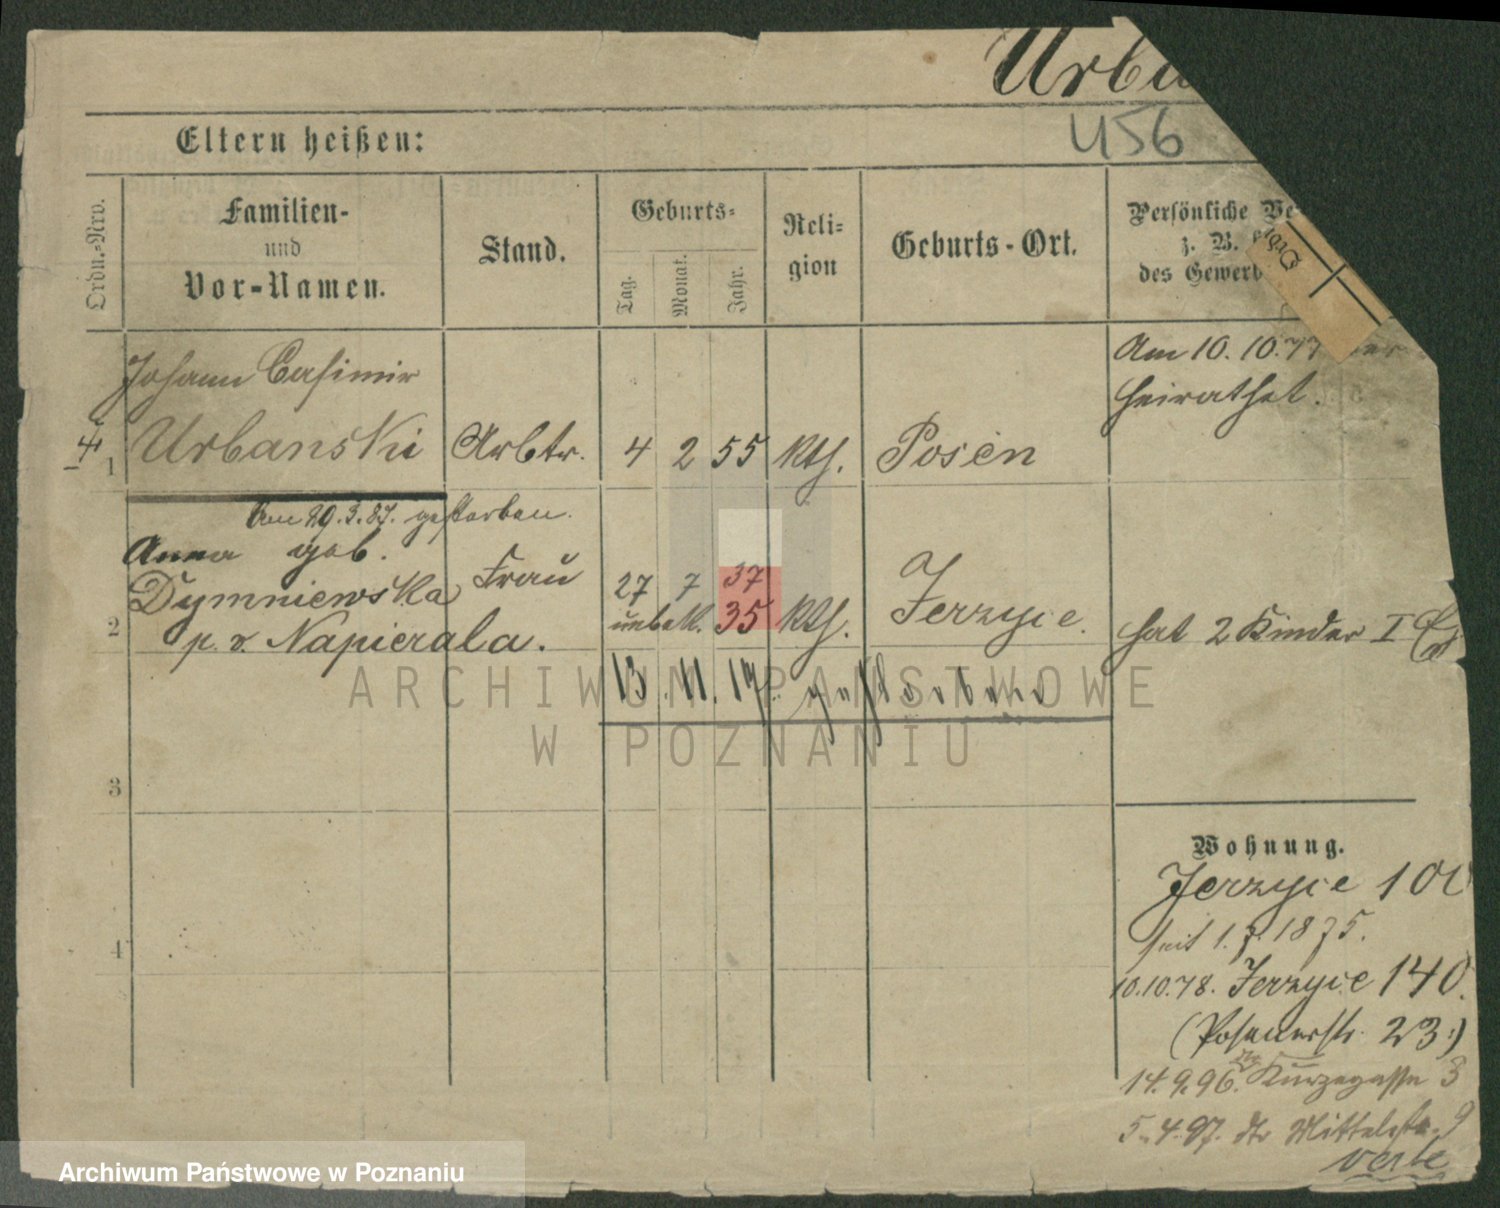 Urba
456
Eltern heißen:
Ordn.-Nro.
Familien-
und
Vor-Namen.
Stand.
Geburts-
Tag.
Monat.
Jahr.
Reli-
gion
Geburts-Ort.
Persönliche Ve
z. B.
des Gewerb
Johann Casimir
1 Urbanski Arbtr. 4 2 55 kth. Posen
Am 10. 10. 77 ver
heirathet.
Am 29.3.87. gestorben.
Anna geb.
Dymniewska Frau 27 7 37
unbek. 35 kth. Jerzyce.
2 p. v. Napierala.
hat 2 Kinder I
13. 11. 19. gestorben
3
4
Wohnung.
Jerzyce 101
seit 1. 7. 1875.
10.10.78. Jerzyce 140.
(Posenerstr. 23.)
14.9.96. Kurzegasse 3
5.4.97. dto Mittelstr. 9
verte
ARCHIWUM PAŃSTWOWE
W POZNANIU
Archiwum Państwowe w Poznaniu